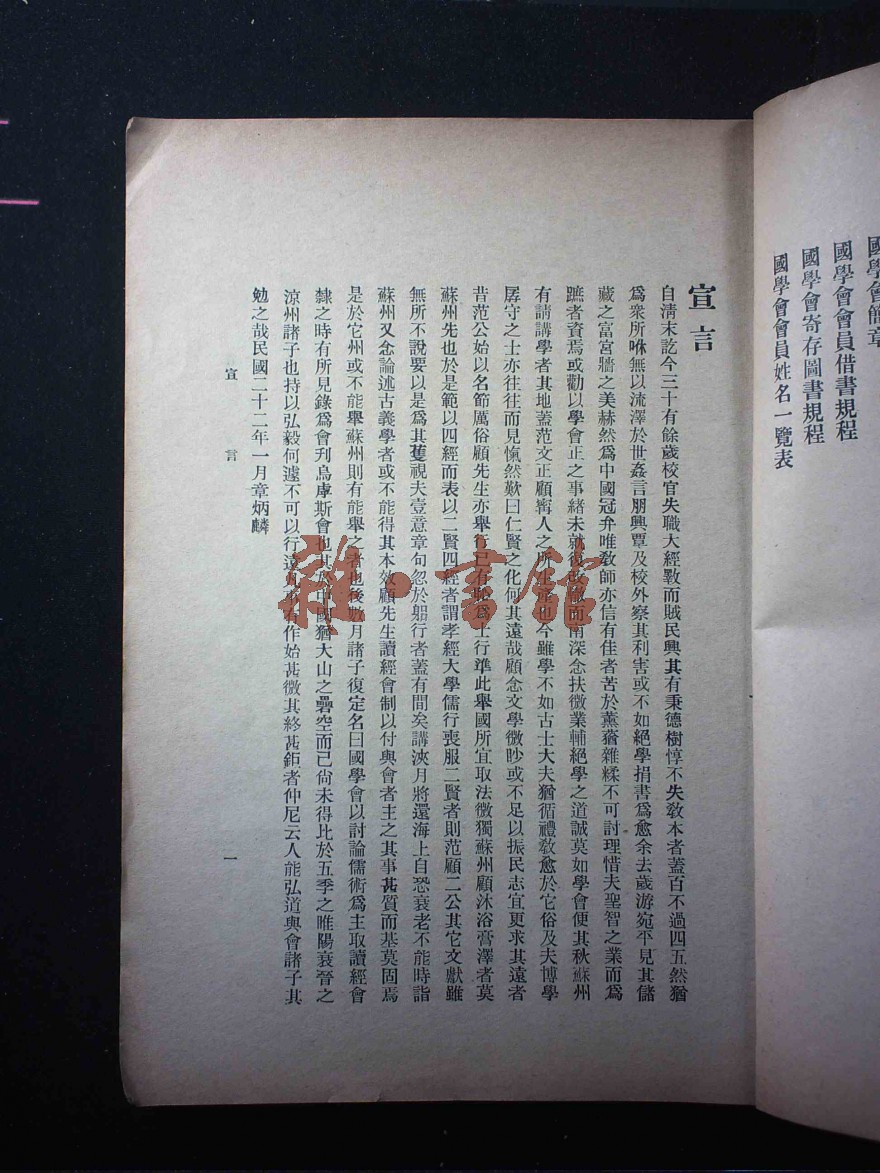 國學會簡章
國學會會員借書規程
國學會寄存圖書規程
國學會會員姓名一覽表
宣言
自清末訖今三十有餘歲校官失職大經斁而賊民興其有秉德樹惇不失教本者蓋百不過四五然猶
爲衆所咻無以流澤於世姦言朋興覃及校外察其利害或不如絕學捐書爲愈余去歲游宛平見其儲
藏之富宮牆之美赫然爲中國冠弁唯教師亦信有佳者苦於薰蕕雜糅不可討理惜夫聖智之業而爲
蹠者資焉或勸以學會正之事緒未就復改轍而南深念扶微業輔絕學之道誠莫如學會便其秋蘇州
有請講學者其地蓋范文正顧甯人之所生產也今雖學不如古士大夫猶循禮教愈於它俗及夫博學
孱守之士亦往往而見愾然歎曰仁賢之化何其遠哉顧念文學微眇或不足以振民志宜更求其遠者
昔范公始以名節厲俗顧先生亦舉行己有恥爲士行準此舉國所宜取法微獨蘇州顧沐浴膏澤者莫
蘇州先也於是範以四經而表以二賢四經者謂孝經大學儒行喪服二賢者則范顧二公其它文獻雖
無所不說要以是爲其蒦視夫壹意章句忽於躬行者蓋有間矣講浹月將還海上自恐衰老不能時詣
蘇州又念論述古義學者或不能得其本效顧先生讀經會制以付與會者主之其事甚質而基莫固焉
是於它州或不能舉蘇州則有能舉之者也後數月諸子復定名曰國學會以討論儒術爲主取讀經會
隸之時有所見錄爲會刊烏虖斯會也其於中國猶大山之礨空而已尙未得比於五季之睢陽衰晉之
涼州諸子也持以弘毅何遽不可以行遠凡事有作始甚微其終甚鉅者仲尼云人能弘道與會諸子其
勉之哉民國二十二年一月章炳麟
宣言
一
雜·書館